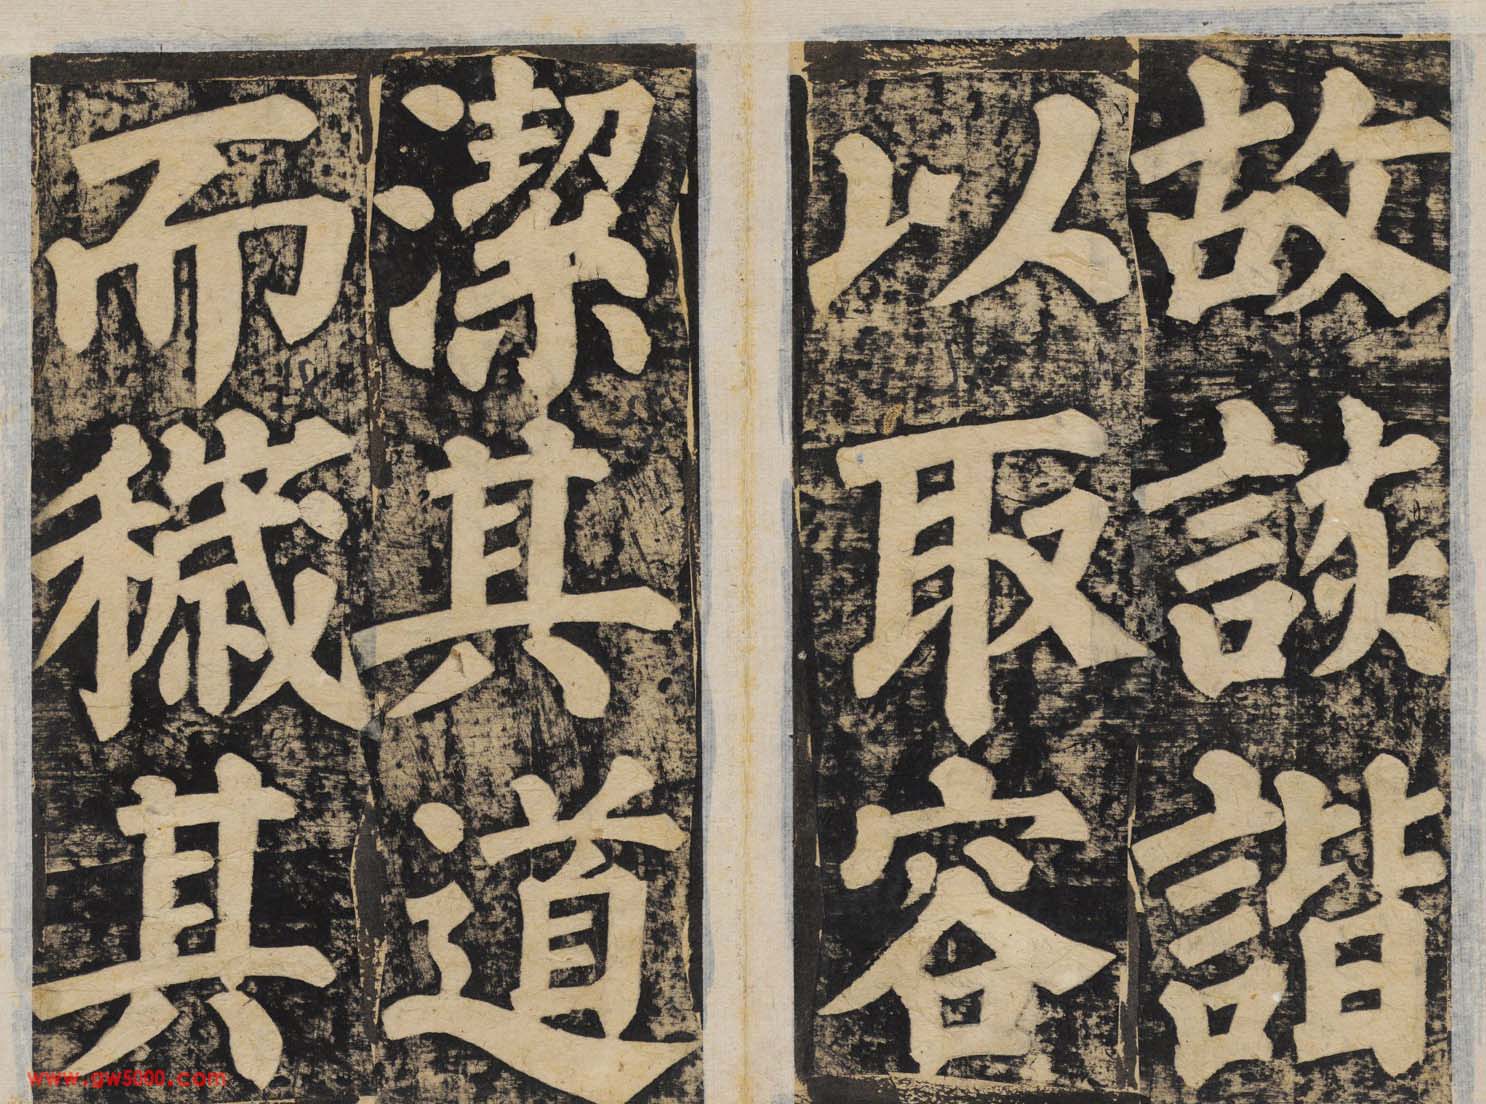 故談諧
以取容
潔其道
而穢其
www.gw5000.com